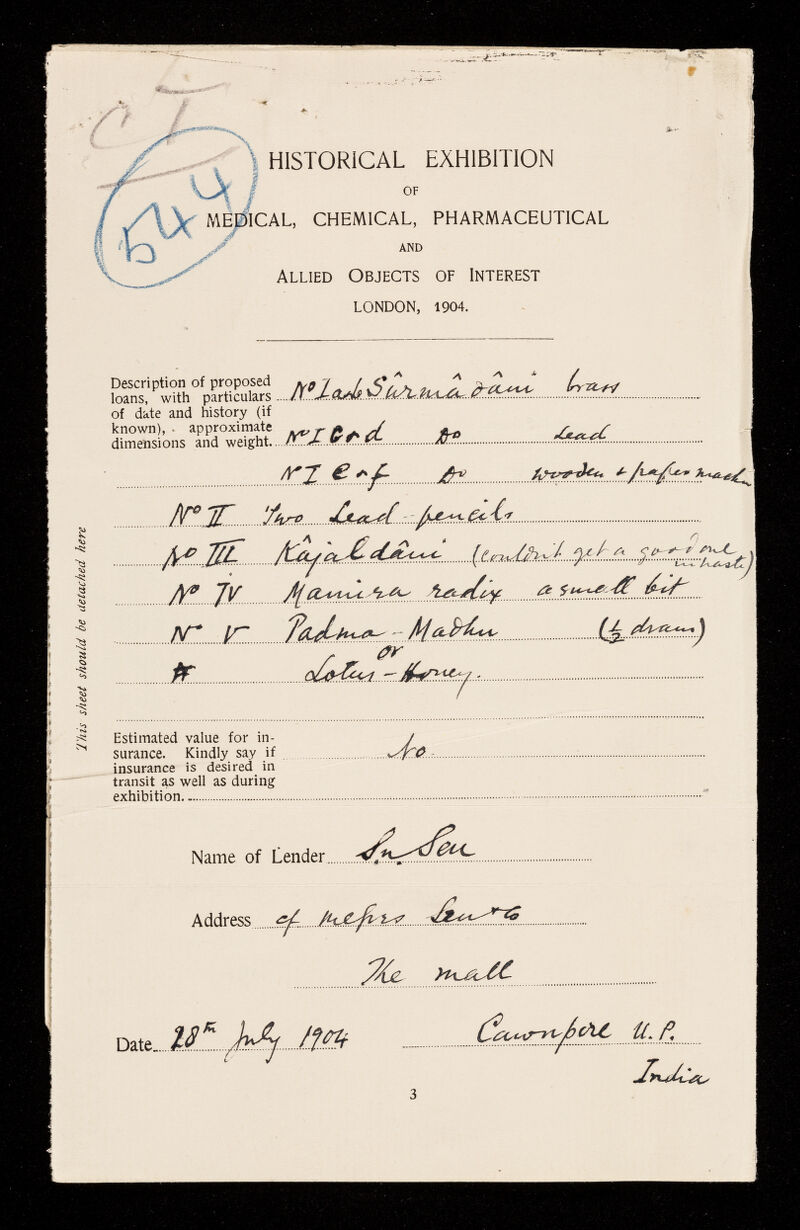 CI
544
HISTORICAL EXHIBITION
OF
MEDICAL, CHEMICAL, PHARMACEUTICAL
AND
ALLIED OBJECTS OF INTEREST
LONDON, 1904.
Description of proposed
loans, with particulars
of date and history (if
known), approximate
dimensions and weight.
No I a & b Sûrmâ dâni brass
No I C & d Do Lead
No I e & f Do wooden & papermache
No II Two Lead-pencils
No III Kâjaldâni (couldn't get a good one
in haste)
No IV Mamira radix a small bit
No V Padma-Madhu (½ dram)
or
Lotus-Honey.
Estimated value for in-
surance. Kindly say if
insurance is desired in
transit as well as during
exhibition.
No.
Name of Lender S.N. Sen
Address c/ Messrs Sen & Co
The Mall
Date 28th July 1904 Cawnpore U.P.
India
3
This sheet should be detached here